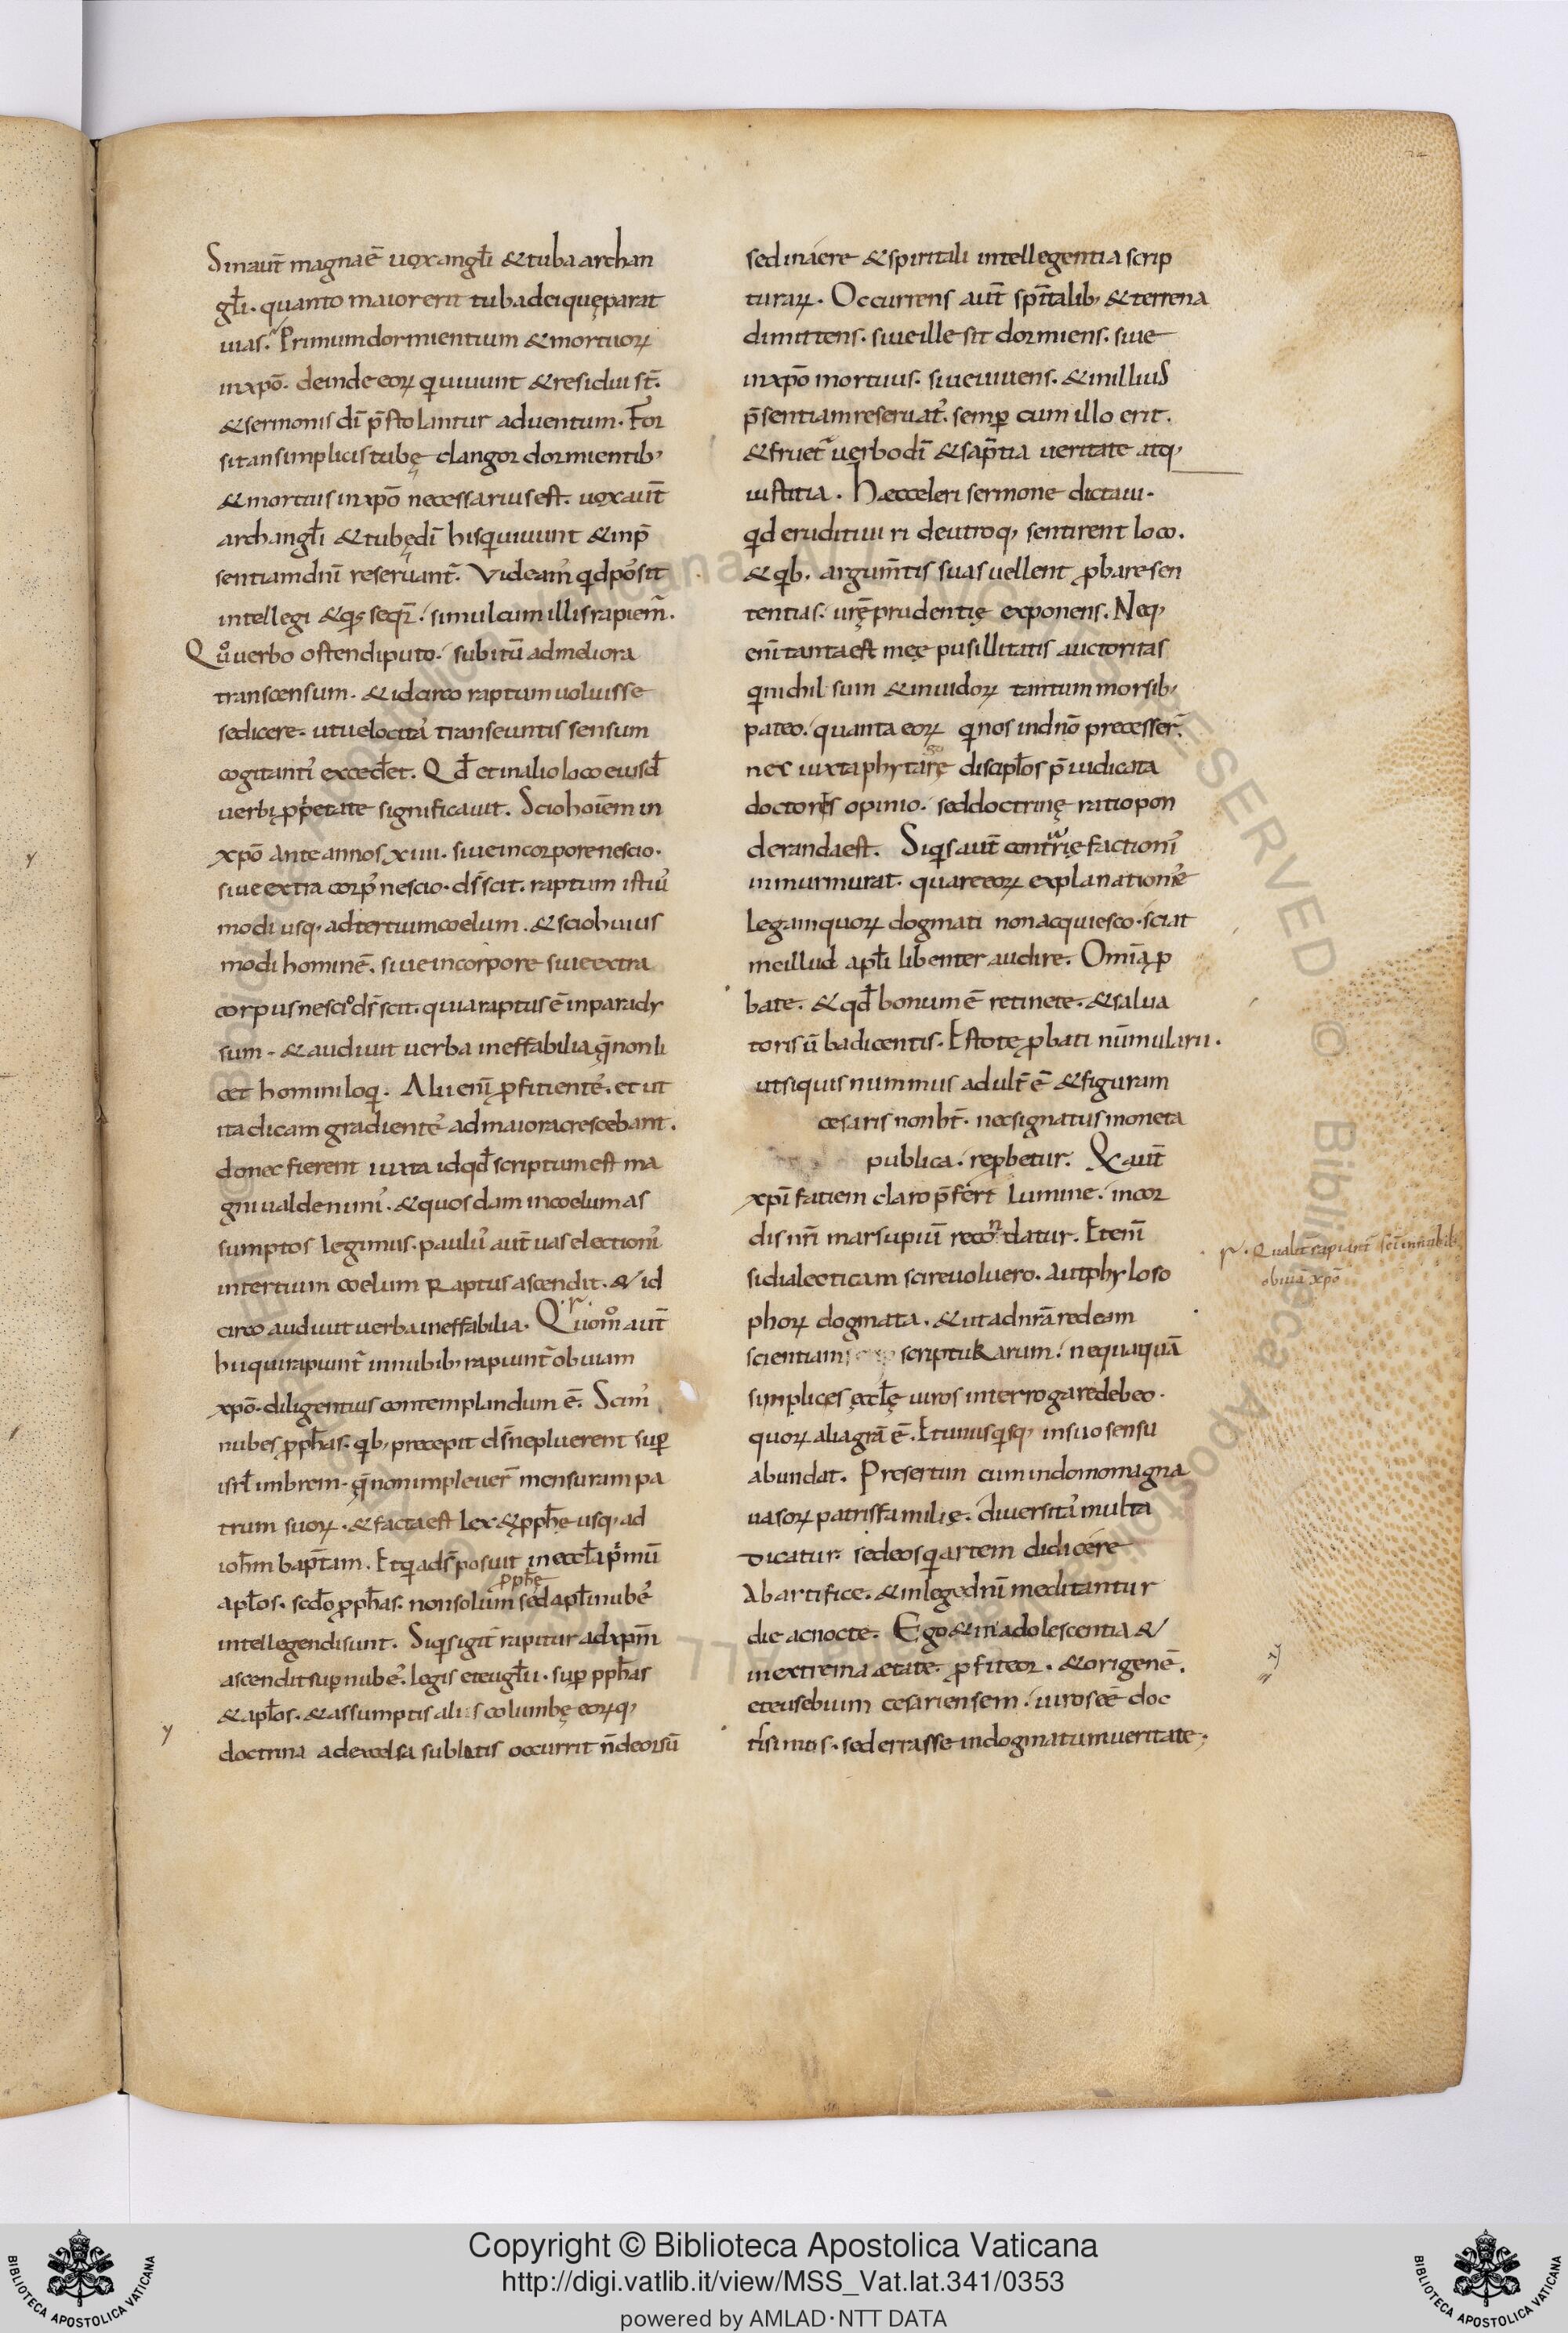 Sinaut̄ magna ē uox angl̄i & tuba archan
gl̄i. quanto maior erit tuba dei quę parat
uias. Primum dormientium & mortuoꝝ
in xp̄o. deinde eoꝝ qui uiuunt & residui st̄.
& sermonis dī p̄stolantur aduentum. For
sitan simplicis tubę clangor dormientib;
& mortuis in xp̄o necessarius est. uox aut̄
archangl̄i & tubę dī his qui uiuunt & inp̄
sentiam dnī reseruant̄. Videam' qd possit
intellegi & qs seqr̄. simul cum illis rapiem̄.
Quo uerbo ostendi puto. subitū ad meliora
transcensum. & idcirco raptum uoluisse
se dicere. ut uelocita' transeuntis sensum
cogitanti' excederet. Qd̄ et in alio loco eiusd̄
uerbi ꝓp̄etate significauit. Scio hoīem in
xp̄o ante annos xiiii. siue in corpore nescio.
siue extra corp' nescio. ds̄ scit. raptum istiu'
modi usq; ad tertium coelum. & scio huius
modi hominē. siue in corpore siue extra
corpus nescio ds̄ scit. quia raptus ē in parady
sum. & audiuit uerba ineffabilia q̄ non li
cet homini loqi. Alii enī ꝓfitiente'. et ut
ita dicam gradiente' ad maiora crescebant.
donec fierent iuxta id qd̄ scriptum est ma
gni ualde nimi'. & quosdam in coelum as
sumptos legimus. paulu' aut̄ uas electioni'
in tertium coelum raptus ascendit. & id
circo audiuit uerba ineffabilia. Quomo aut̄
hii qui rapiunt̄ in nubib; rapiunt̄ obuiam
xp̄o. diligentius contemplandum ē. Scim'
nubes ꝓph̄as. qb; precepit ds̄ ne pluerent suꝑ
isrl̄ imbrem. q̄ non impleuer̄ mensuram pa
trum suoꝝ. & facta est lex & ꝓph̄ę usq; ad
ioh̄m bap̄tam. Et qia ds̄ posuit in eccl̄a p̄mū
apl̄os. sedo ꝓph̄as. non solum ꝓph̄ę sed apl̄i nube'
intellegendi sunt. Siqs igit̄ rapitur ad xp̄m
ascendit suꝑ nube'. legis et eugl̄ii. suꝑ ꝓph̄as
& apl̄os. & assumptis alis columbę eoꝝq;
doctrina ad excelsa sublatis occurrit n̄ deorsū
sed in aere & spiritali intellegentia scrip
turaꝝ. Occurrens aut̄ sp̄italib; & terrena
dimittens. siue ille sit dormiens. siue
in xp̄o mortuus. siue uiuens. & in illius
p̄sentiam reseruat'. semꝑ cum illo erit.
& fruet̄ uerbo dī & sap̄tia ueritate atq;
iustitia. Hæc celeri sermone dictaui.
qd eruditi uiri de utroq; sentirent loco.
& qb; argum̄tis suas uellent ꝓbare sen
tentias. urę̄ prudentię exponens. Neq;
enī tanta est meę pusillitatis auctoritas
qi nichil sum & inuidoꝝ tantum morsib;
pateo. quanta eoꝝ qi nos in dn̄o precesser̄.
nec iuxta phytagorę discipl̄os p̄iudicata
doctoris opinio. sed doctrinę ratio pon
deranda est. Siqs aut̄ contrarię factioni'
inmurmurat. quare eoꝝ explanatione'
legam quoꝝ dogmati non acquiesco. sciat
me illud apl̄i libenter audire. Omīa ꝓ
bate. & qd̄ bonum ē retinete. & salua
toris ū ba dicentis. Estote ꝓbati nūmularii.
ut siquis nummus adult̄ ē & figuram
cesaris non ht̄. nec signatus moneta
publica. reꝓbetur. Q& aut̄
xpī fatiem claro p̄fert lumine. in cor
dis nr̄i marsupiū recondatur. Etenī
si dialecticam scire uoluero. aut phyloso
phoꝝ dogmata. & ut ad nr̄ā redeam
scientiam scripturarum. nequaquā
simplices ęccl̄ę uiros interrogare debeo.
quoꝝ alia grā ē. Et unusqisq; in suo sensu
abundat. Presertim cum in domo magna
uasoꝝ patris familię. diuersita' multa
dicatur. sed eos qi artem didicere
ab artifice. & in lege dnī meditantur
die ac nocte. Ego & in adolescentia &
in extrema ætate. ꝓfiteor. & origenē.
et eusebium cesariensem. uiros eē doc
tissimos. sed errasse in dogmatum ueritate;
r. Qualit̄ rapiant̄ sc̄i in nubib;
obuiā xp̄o
Copyright © Biblioteca Apostolica Vaticana
http://digi.vatlib.it/view/MSS_Vat.lat.341/0353
powered by AMLAD·NTT DATA
BIBLIOTECA APOSTOLICA VATICANA
BIBLIOTECA APOSTOLICA VATICANA